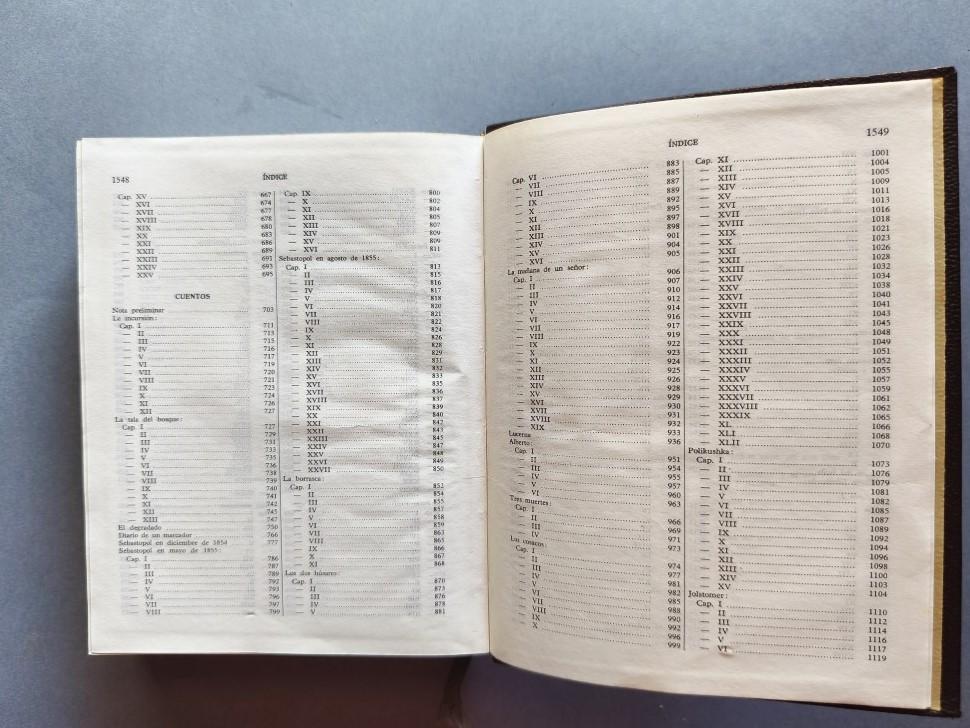 1548 ÍNDICE
Cap. XV 667
— XVI 674
— XVII 677
— XVIII 678
— XIX 680
— XX 683
— XXI 686
— XXII 689
— XXIII 691
— XXIV 693
— XXV 695
CUENTOS
Nota preliminar 703
La incursión:
Cap. I 711
— II 713
— III 715
— IV 716
— V 717
— VI 719
— VII 720
— VIII 721
— IX 723
— X 724
— XI 726
— XII 727
La tala del bosque:
Cap. I 727
— II 729
— III 731
— IV 733
— V 735
— VI 736
— VII 738
— VIII 739
— IX 740
— X 741
— XI 742
— XII 745
— XIII 747
El degradado 750
Diario de un marcador 766
Sebastopol en diciembre de 1854 777
Sebastopol en mayo de 1855:
Cap. I 786
— II 787
— III 789
— IV 792
— V 793
— VI 796
— VII 797
— VIII 799
Cap. IX 800
— X 802
— XI 804
— XII 805
— XIII 807
— XIV 809
— XV 809
— XVI 811
Sebastopol en agosto de 1855:
Cap. I 813
— II 815
— III 816
— IV 817
— V 818
— VI 820
— VII 821
— VIII 822
— IX 824
— X 826
— XI 828
— XII 829
— XIII 831
— XIV 832
— XV 833
— XVI 835
— XVII 836
— XVIII 837
— XIX 839
— XX 840
— XXI 842
— XXII 843
— XXIII 845
— XXIV 847
— XXV 848
— XXVI 849
— XXVII 850
La borrasca:
Cap. I 852
— II 854
— III 855
— IV 857
— V 858
— VI 859
— VII 863
— VIII 865
— IX 866
— X 867
— XI 868
Los dos húsares:
Cap. I 870
— II 873
— III 876
— IV 878
— V 881
ÍNDICE 1549
Cap. VI 883
— VII 885
— VIII 887
— IX 889
— X 892
— XI 895
— XII 897
— XIII 898
— XIV 901
— XV 904
— XVI 905
La mañana de un señor:
Cap. I 906
— II 907
— III 910
— IV 912
— V 914
— VI 916
— VII 917
— VIII 919
— IX 922
— X 923
— XI 924
— XII 925
— XIII 926
— XIV 928
— XV 929
— XVI 930
— XVII 931
— XVIII 932
— XIX 933
Lucerna 936
Alberto:
Cap. I 951
— II 954
— III 955
— IV 957
— V 960
— VI 963
Tres muertes:
Cap. I 966
— II 969
— III 971
— IV 973
Los cosacos:
Cap. I 974
— II 977
— III 981
— IV 982
— V 985
— VI 988
— VII 990
— VIII 992
— IX 996
— X 999
Cap. XI 1001
— XII 1004
— XIII 1005
— XIV 1009
— XV 1011
— XVI 1013
— XVII 1016
— XVIII 1018
— XIX 1021
— XX 1023
— XXI 1026
— XXII 1028
— XXIII 1032
— XXIV 1034
— XXV 1038
— XXVI 1040
— XXVII 1041
— XXVIII 1043
— XXIX 1045
— XXX 1048
— XXXI 1049
— XXXII 1051
— XXXIII 1052
— XXXIV 1055
— XXXV 1057
— XXXVI 1059
— XXXVII 1061
— XXXVIII 1062
— XXXIX 1065
— XL 1066
— XLI 1068
— XLII 1070
Polikushka:
Cap. I 1073
— II 1076
— III 1079
— IV 1081
— V 1082
— VI 1085
— VII 1087
— VIII 1089
— IX 1092
— X 1094
— XI 1096
— XII 1098
— XIII 1100
— XIV 1103
— XV 1104
Jolstomer:
Cap. I 1110
— II 1112
— III 1114
— IV 1116
— V 1117
— VI 1119